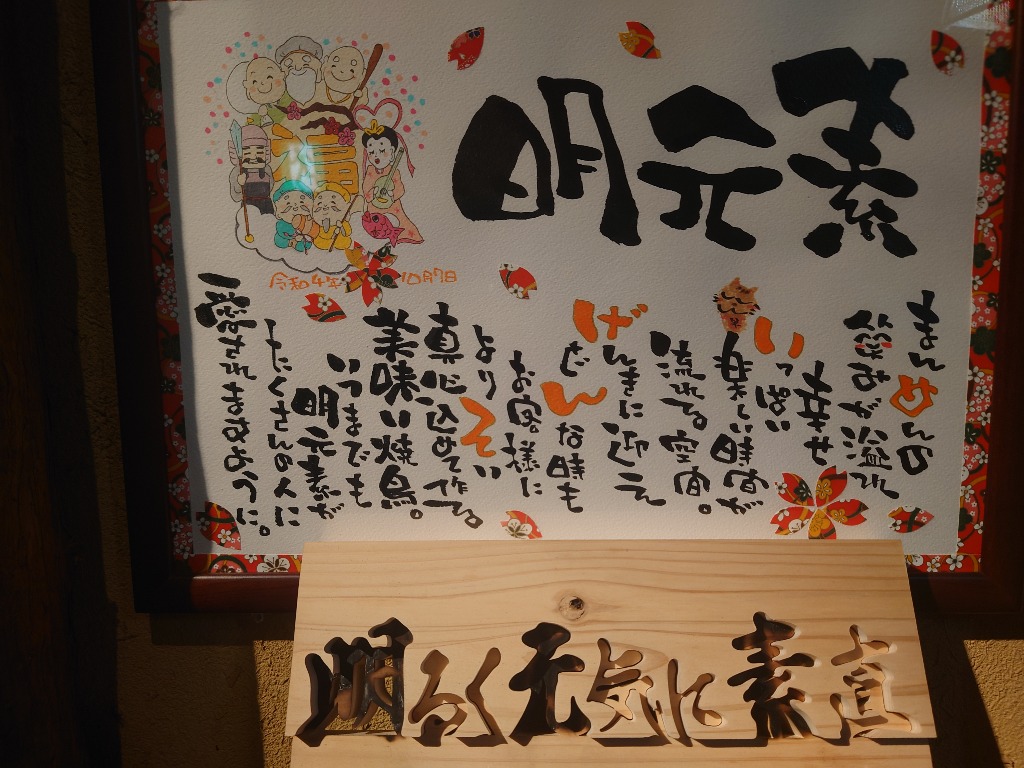 明元素
福
令和4年 10月7日
まんめんの
笑みが溢れ
幸せ
いっぱい
楽しい時間が
流れてる空間。
げんきに迎え
どんな時も
お客様に
よりそい
真心込めて作る。
美味い焼鳥。
いつまでも
明元素が
たくさんの人に
愛されますように。
明るく元気に素直